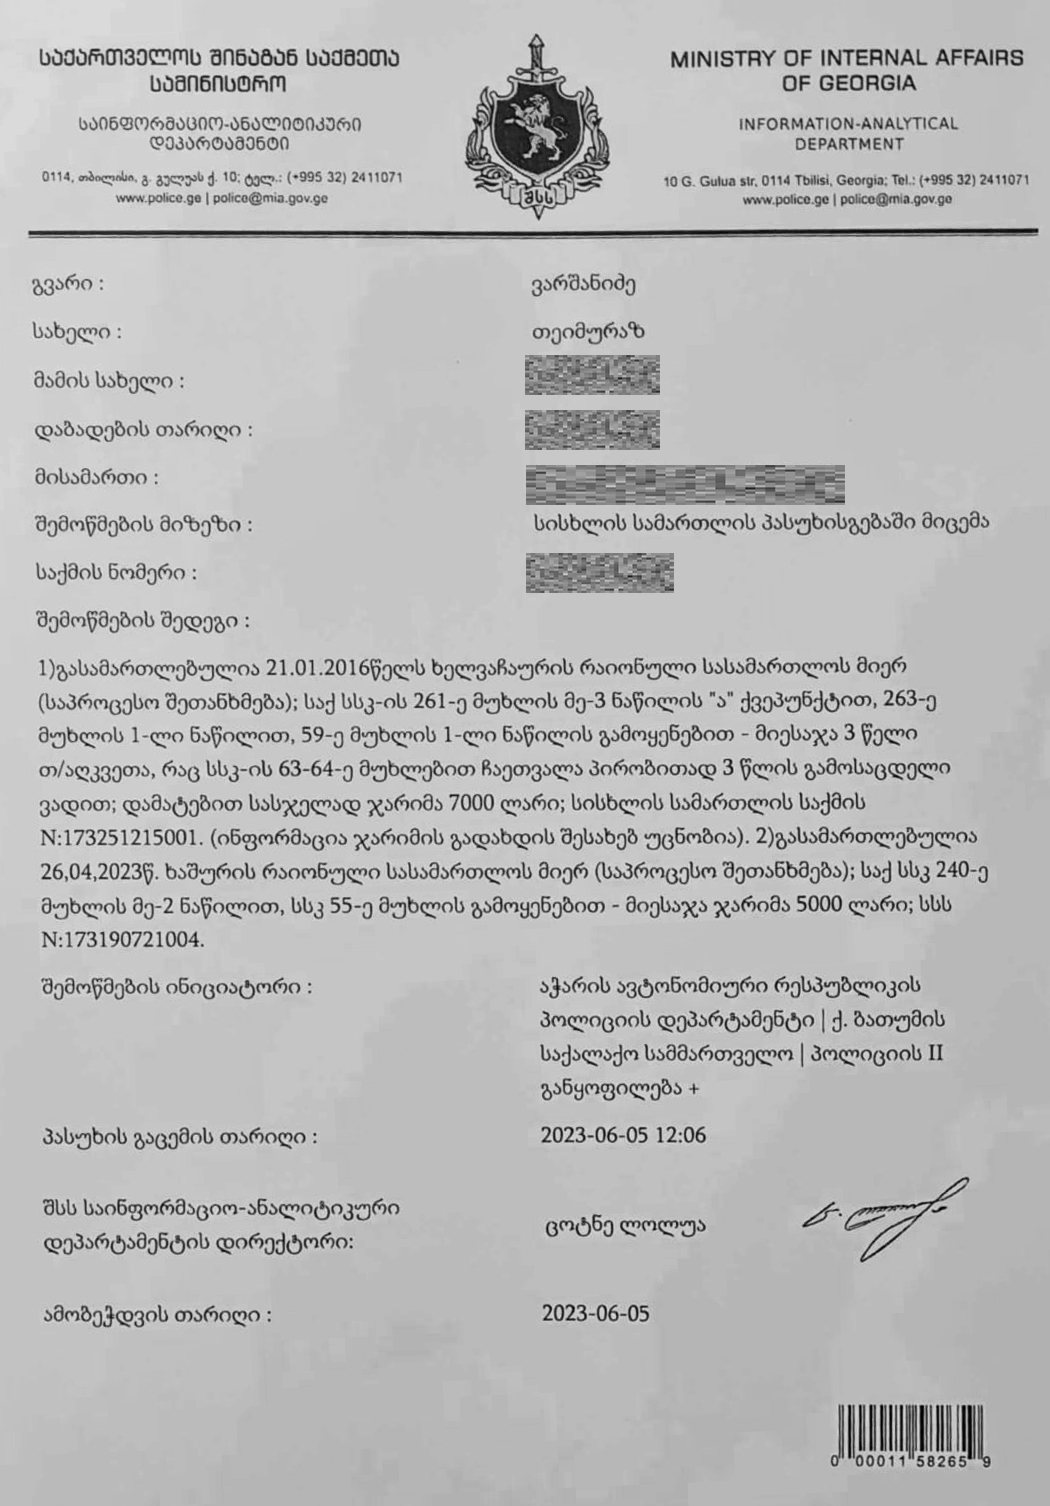 საქართველოს შინაგან საქმეთა
სამინისტრო
საინფორმაციო-ანალიტიკური
დეპარტამენტი
0114, თბილისი, გ. გულუას ქ. 10; ტელ.: (+995 32) 2411071
www.police.ge | police@mia.gov.ge
შსს
MINISTRY OF INTERNAL AFFAIRS
OF GEORGIA
INFORMATION-ANALYTICAL
DEPARTMENT
10 G. Gulua str, 0114 Tbilisi, Georgia; Tel.: (+995 32) 2411071
www.police.ge | police@mia.gov.ge
გვარი : ვარშანიძე
სახელი : თეიმურაზ
მამის სახელი :
დაბადების თარიღი :
მისამართი :
შემოწმების მიზეზი : სისხლის სამართლის პასუხისგებაში მიცემა
საქმის ნომერი :
შემოწმების შედეგი :
1)გასამართლებულია 21.01.2016წელს ხელვაჩაურის რაიონული სასამართლოს მიერ
(საპროცესო შეთანხმება); საქ სსკ-ის 261-ე მუხლის მე-3 ნაწილის "ა" ქვეპუნქტით, 263-ე
მუხლის 1-ლი ნაწილით, 59-ე მუხლის 1-ლი ნაწილის გამოყენებით - მიესაჯა 3 წელი
თ/აღკვეთა, რაც სსკ-ის 63-64-ე მუხლებით ჩაეთვალა პირობითად 3 წლის გამოსაცდელი
ვადით; დამატებით სასჯელად ჯარიმა 7000 ლარი; სისხლის სამართლის საქმის
N:173251215001. (ინფორმაცია ჯარიმის გადახდის შესახებ უცნობია). 2)გასამართლებულია
26,04,2023წ. ხაშურის რაიონული სასამართლოს მიერ (საპროცესო შეთანხმება); საქ სსკ 240-ე
მუხლის მე-2 ნაწილით, სსკ 55-ე მუხლის გამოყენებით - მიესაჯა ჯარიმა 5000 ლარი; სსს
N:173190721004.
შემოწმების ინიციატორი : აჭარის ავტონომიური რესპუბლიკის
პოლიციის დეპარტამენტი | ქ. ბათუმის
საქალაქო სამმართველო | პოლიციის II
განყოფილება +
პასუხის გაცემის თარიღი : 2023-06-05 12:06
შსს საინფორმაციო-ანალიტიკური
დეპარტამენტის დირექტორი: ცოტნე ლოლუა
ამობეჭდვის თარიღი : 2023-06-05
0 00011 58265 9